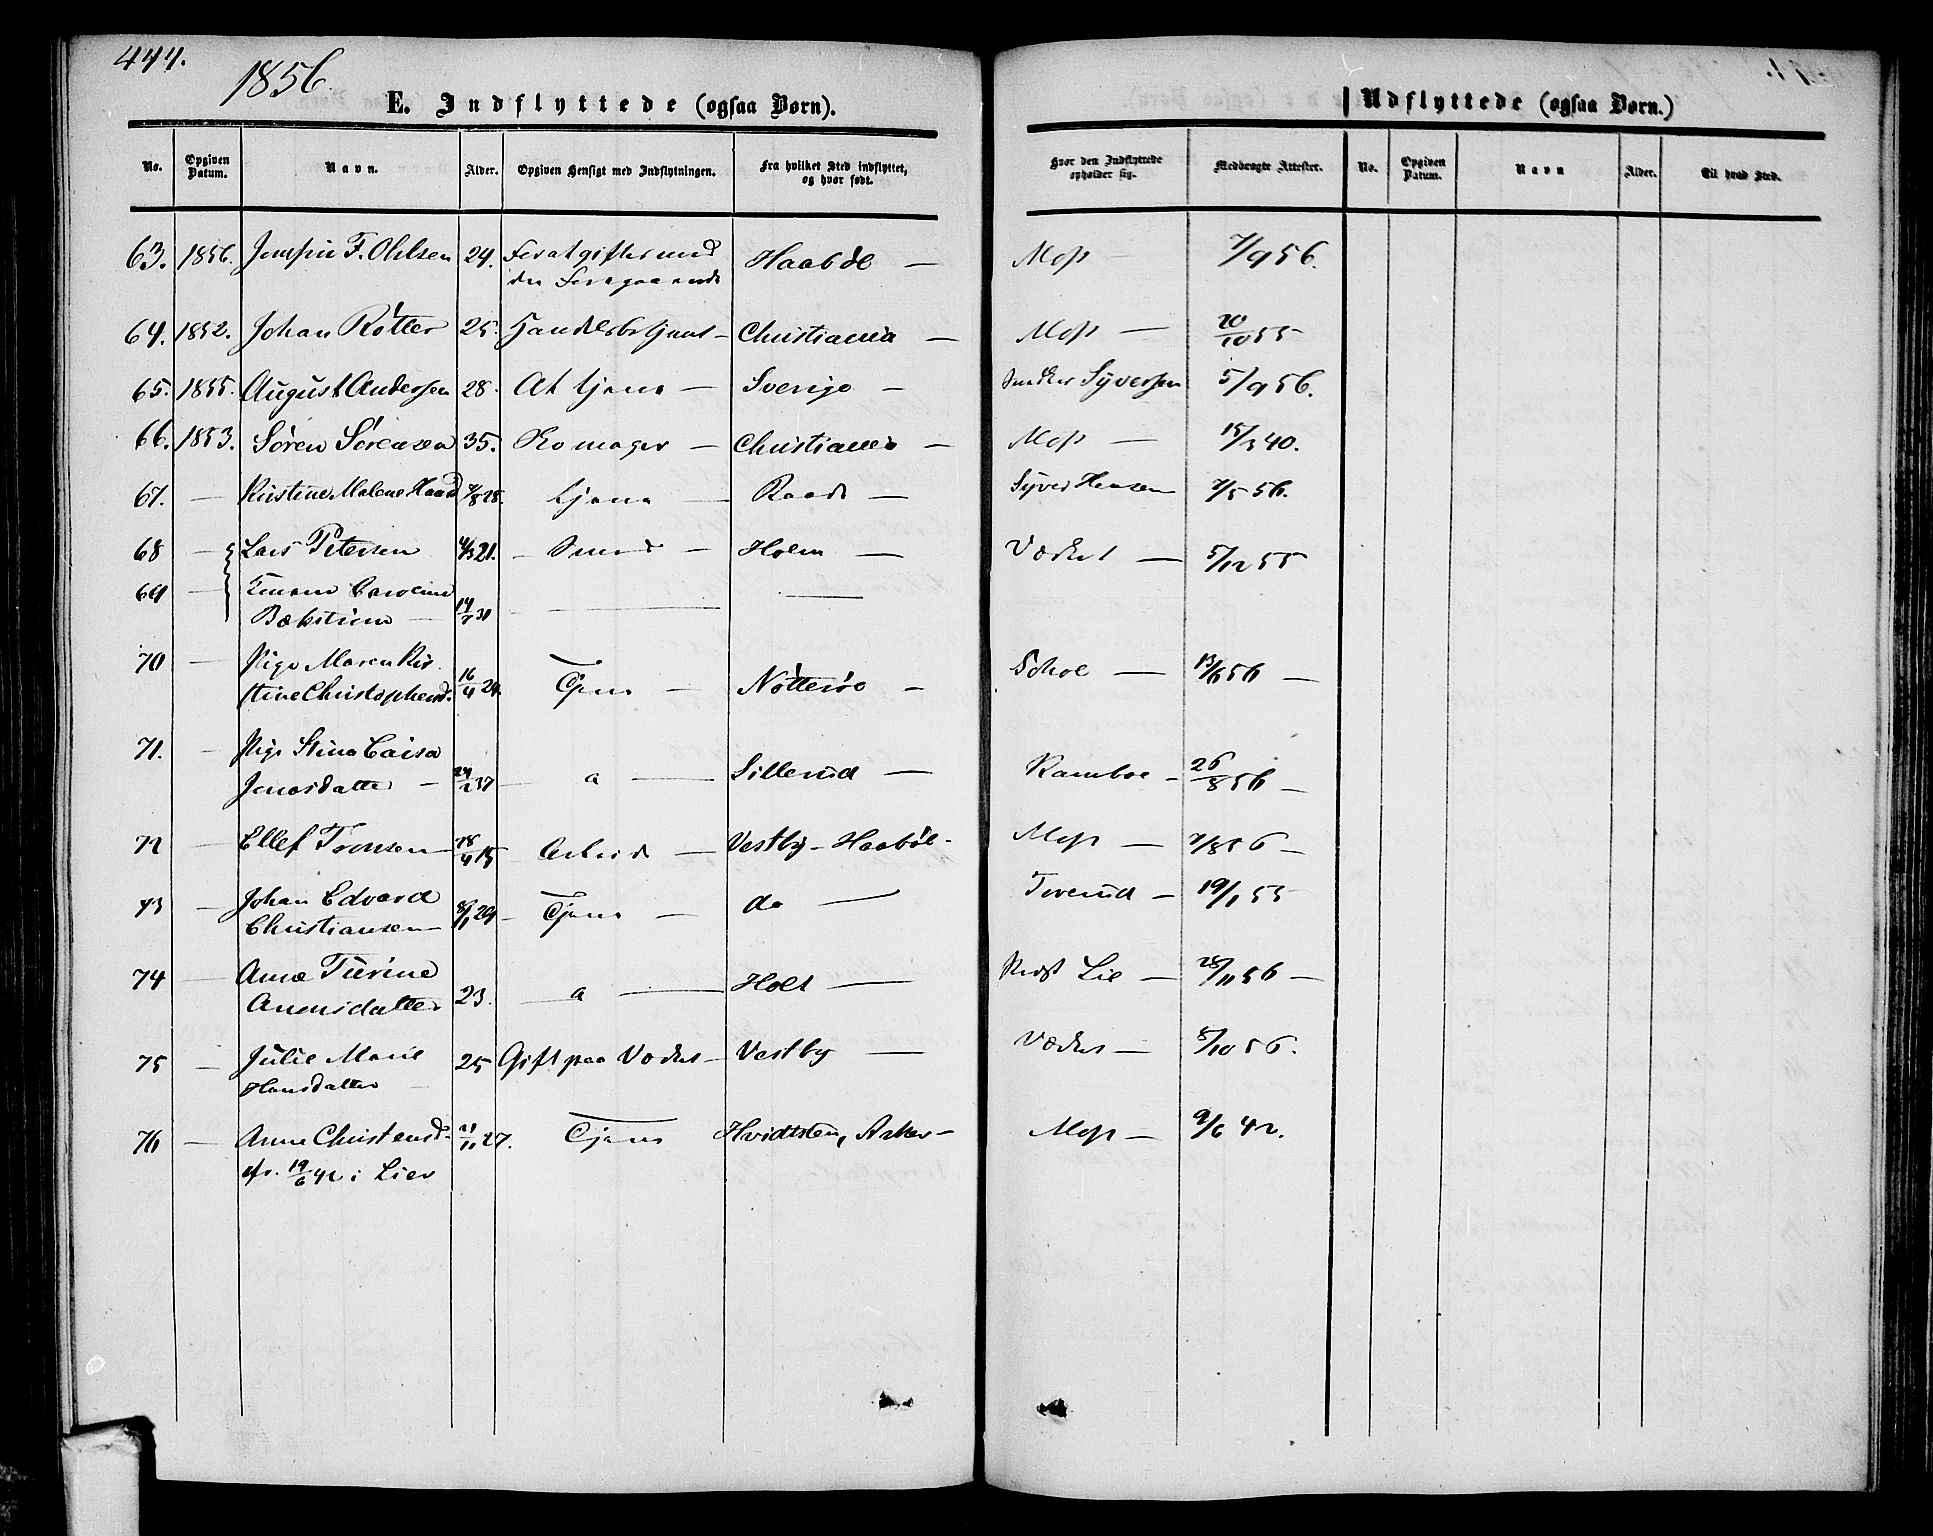 444.
1856
E. Indflyttede (ogsaa Børn).
Udflyttede (ogsaa Børn.)
No. Opgiven Datum. Navn. Alder. Opgiven Hensigt med Indflytningen. Fra hvilket Sted indflyttet, og hvor født. Hvor den Indflyttede opholder sig. Medbragte Attester. No. Opgiven Datum. Navn Alder. Til hvad Sted.
63. 1856. F. Ohlsen 24. med Haabøl — Moss — 7/9 56.
den Foregaaende
64. 1852. Johan Rötter 25. Handelsbetjent — Christiania — Moss — 20/10 55
65. 1855. August Andersen 28. At tjene — Sverige — Syversen 5/9 56.
66. 1853. Søren Sørensen 35. Skomager — Christiania — Moss — 15/3 40.
67. — Kristine Malene Haard 7/8 28. tjene — Raade — Syver Hansen 7/5 56.
68 — Lars Petersen 4/3 21. — Smed — Holm — Vædet — 5/12 55
69 — Caroline
— 14/7 31 — — —
70 — Pige Maren Kri
stine Christophersd. 16/4 24. Tjene — Nøtterøe — Schoe — 13/6 56 —
71. — Pige Stina Caisa
Jonasdatter — 24/2 37 — a — Sillerud — Ramboe — 26/8 56 —
72 — Ellef Tronsen 28/4 15 Arbeide — Vestby — Haabøl — Moss — 7/8 56 —
73 — Johan Edvard
Christiansen — 29 — Tjene — do — Tverud — 19/1 55
74 — Anne Turine
23. — a — Holt — Lie — 28/11 56 —
75 — Julie Marie 25 Gift paa Vædet — Vestby — Vædet — 8/10 56.
Hansdatter —
76 — Anne Christensd. 21/11 27. Tjene Hvidtsten, Asker — Moss — 9/6 42.
19/6 42 i Lier